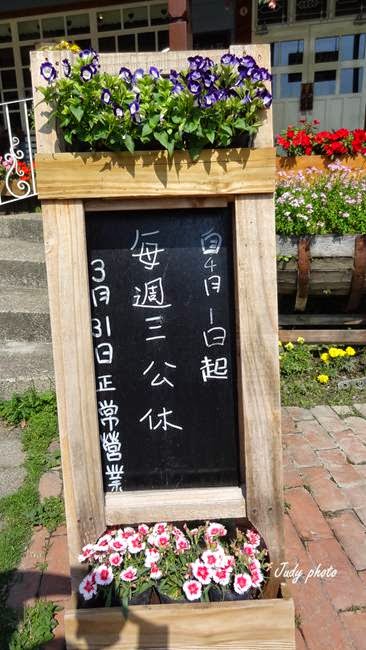 自4月1日起
每週三公休
3月31日正常營業
Judy photo